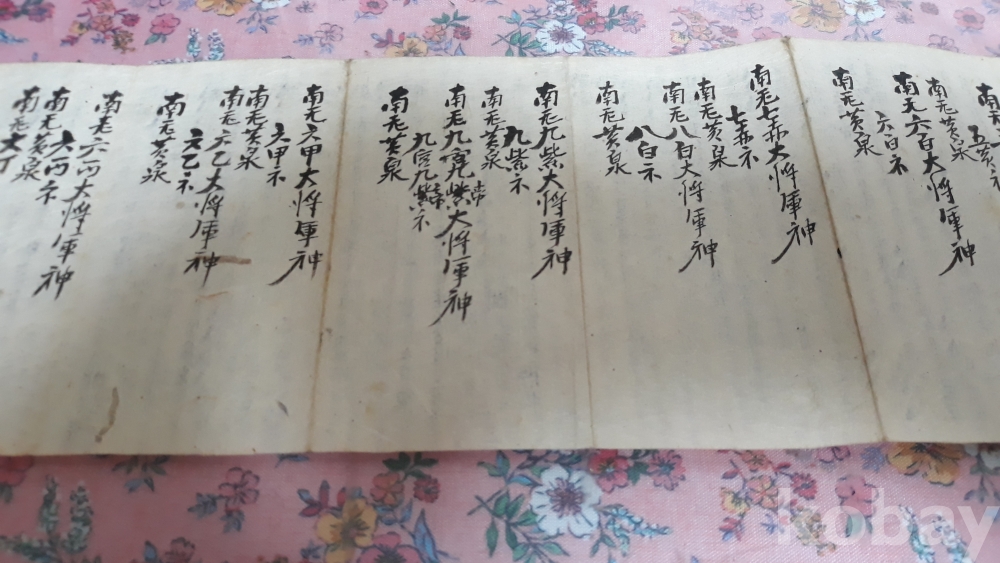 南无
五黄
南无黄泉
南无六白大将軍神
六白
南无黄泉
南无七赤大将軍神
七赤
南无黄泉
南无八白大将軍神
八白
南无黄泉
南无九紫大将軍神
九紫
南无黄泉
南无九宮九紫大将軍神
九宮九紫
南无黄泉
南无六甲大将軍神
六甲
南无黄泉
南无六乙大将軍神
六乙
南无黄泉
南无六丙大将軍神
六丙
南无黄泉
南无六丁
kobay